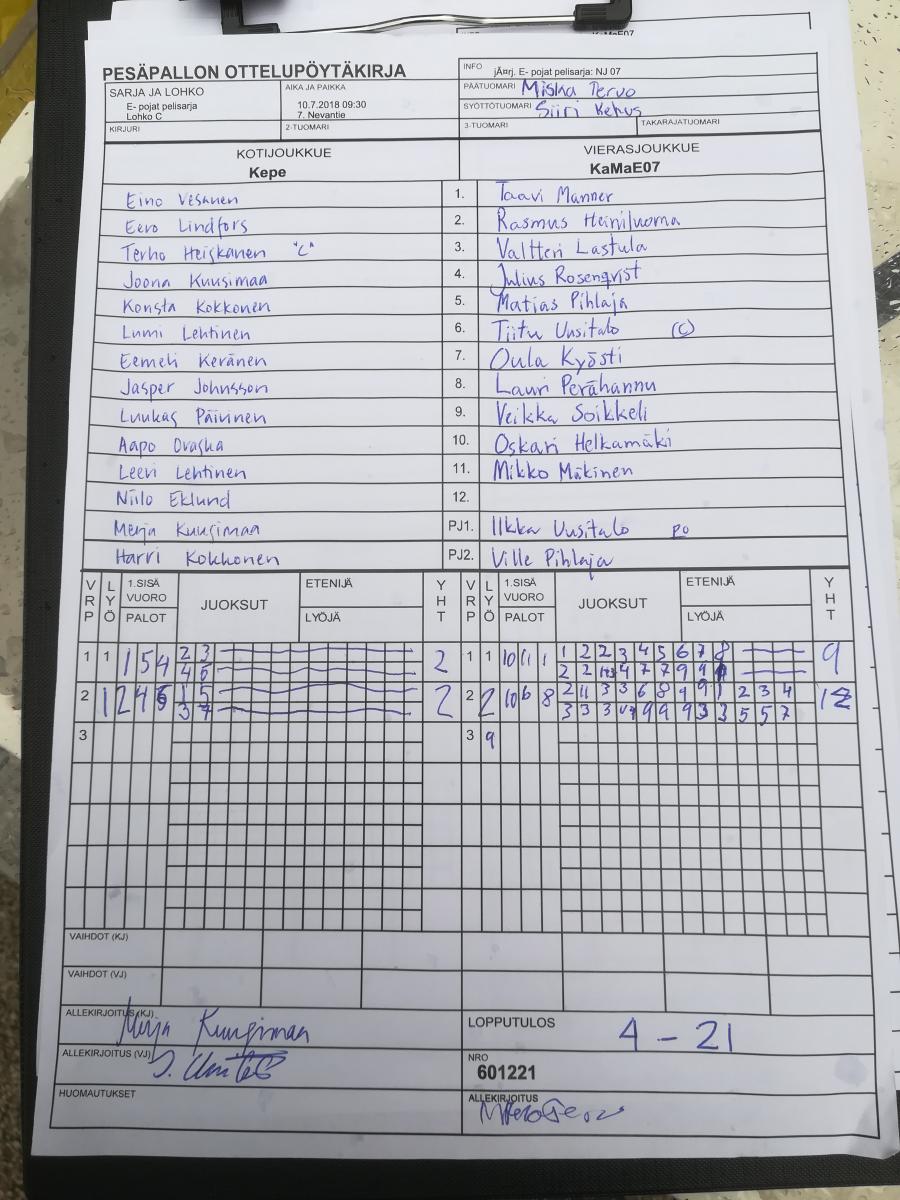 KaMaE07
PESÄPALLON OTTELUPÖYTÄKIRJA
INFO jÃ¤rj. E- pojat pelisarja: NJ 07
SARJA JA LOHKO
E- pojat pelisarja
Lohko C
AIKA JA PAIKKA
10.7.2018 09:30
7. Nevantie
PÄÄTUOMARI Miska Tervo
SYÖTTÖTUOMARI Siiri Kehus
KIRJURI 2-TUOMARI 3-TUOMARI TAKARAJATUOMARI
KOTIJOUKKUE VIERASJOUKKUE
Kepe KaMaE07
Eino Vesanen 1. Taavi Manner
Eero Lindfors 2. Rasmus Heiniluoma
Terho Heiskanen "C" 3. Valtteri Lastula
Joona Kuusimaa 4. Julius Rosenqvist
Konsta Kokkonen 5. Matias Pihlaja
Lumi Lehtinen 6. Tiitu Uusitalo (C)
Eemeli Keränen 7. Oula Kyösti
Jasper Johnsson 8. Lauri Perähannu
Luukas Päivinen 9. Veikka Soikkeli
Aapo Ovaska 10. Oskari Helkamäki
Leevi Lehtinen 11. Mikko Mäkinen
Niilo Eklund 12.
Merja Kuusimaa PJ1. Ilkka Uusitalo PO
Harri Kokkonen PJ2. Ville Pihlaja
VRP LYÖ 1.SISÄ VUORO PALOT JUOKSUT ETENIJÄ LYÖJÄ YHT VRP LYÖ 1.SISÄ VUORO PALOT JUOKSUT ETENIJÄ LYÖJÄ YHT
1 1 1 5 4 2 3 2 1 1 10 11 1 1 2 2 3 4 5 6 7 8 9
4 5 2 2 4 7 7 9 9
2 1 2 4 1 5 2 2 2 10 6 8 2 11 3 3 6 8 9 9 1 2 3 4 12
3 7 3 3 3 9 9 9 3 3 5 5 7
3 3 9
VAIHDOT (KJ)
VAIHDOT (VJ)
ALLEKIRJOITUS (KJ) Merja Kuusimaa
LOPPUTULOS 4 - 21
ALLEKIRJOITUS (VJ)
NRO
601221
HUOMAUTUKSET
ALLEKIRJOITUS